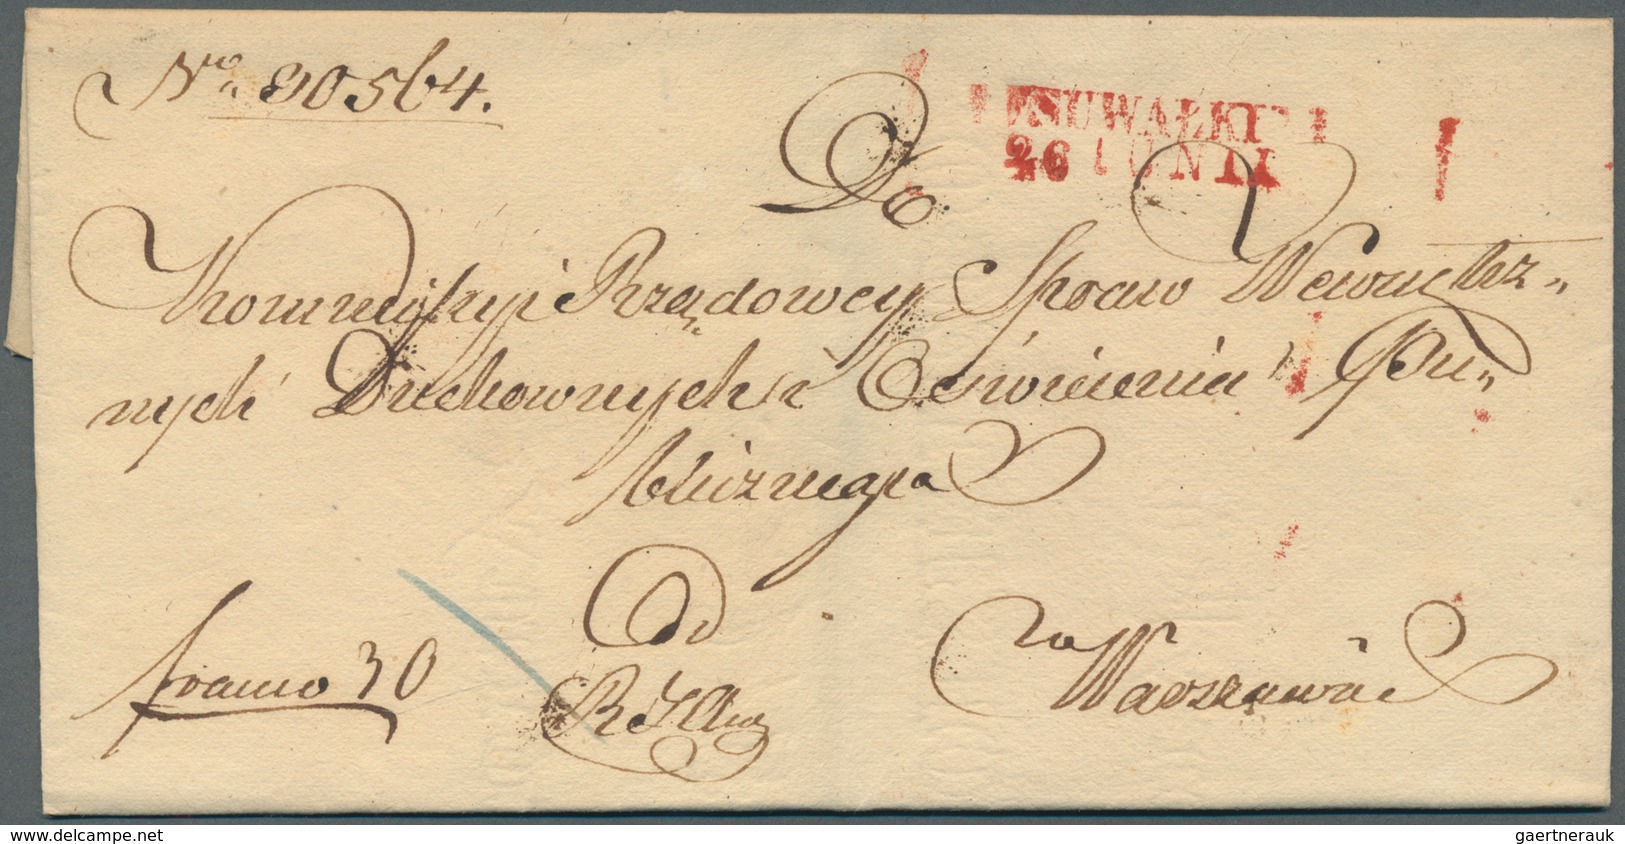 No. 90564.
SUWAŁKI
26 IUNII
Do
Kommissyi Rządowey Spraw Wewnętrz„
nych Duchownych i Oświecenia Pu„
blicznego
franco 30
Od
w Warszawie
www.delcampe.net
gaertnerauk